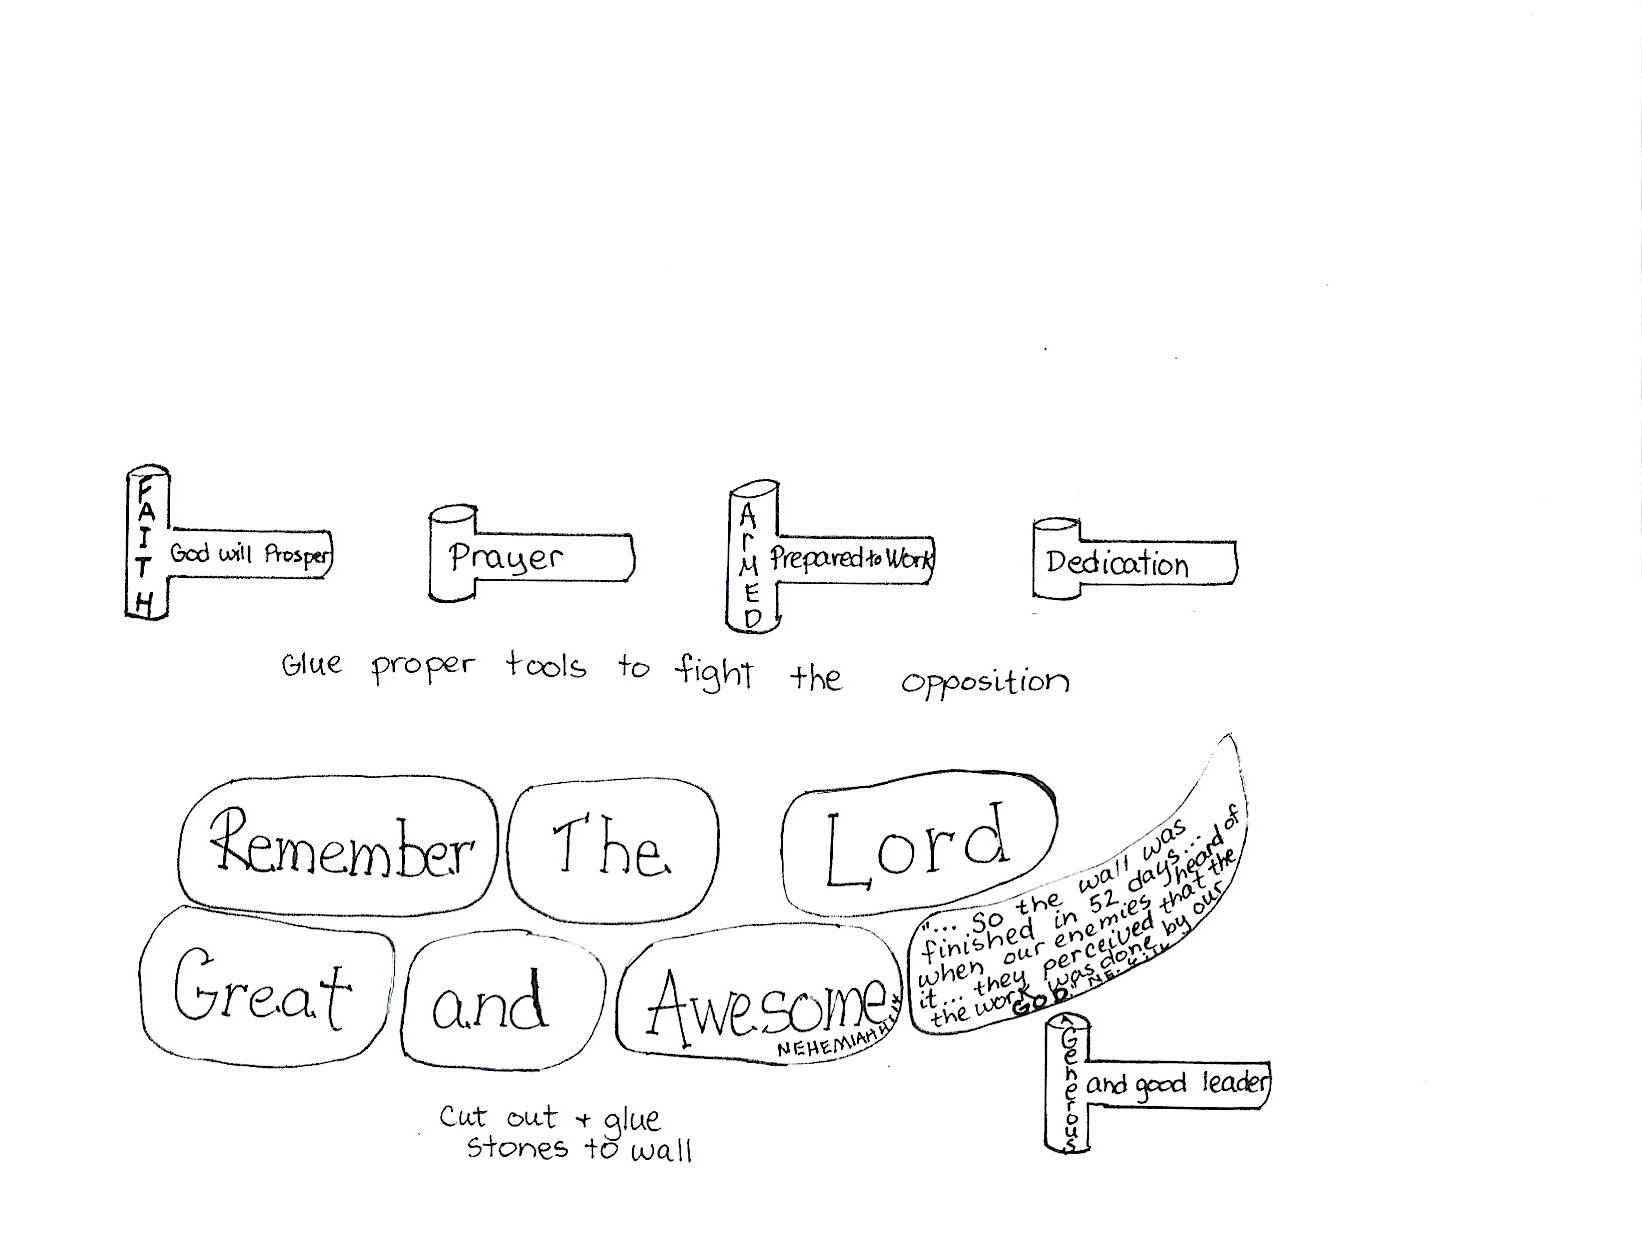 FAITH
God will Prosper
Prayer
ArMED
Prepared to Work
Dedication
Glue proper tools to fight the opposition
Remember The Lord
Great and Awesome
NEHEMIAH
"... So the wall was
finished in 52 days...
when our enemies heard of
it... they perceived that the
the work was done by our
GOD." NE.
A Generous
and good leader
Cut out + glue
stones to wall